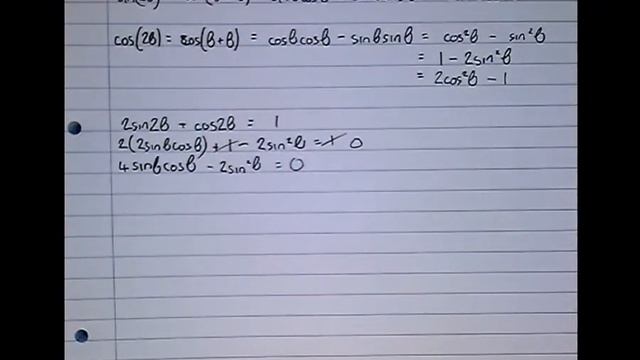 cos(2θ) = cos(θ+θ) = cosθcosθ - sinθsinθ = cos²θ - sin²θ
= 1 - 2sin²θ
= 2cos²θ - 1
2sin2θ + cos2θ = 1
2(2sinθcosθ) + 1 - 2sin²θ = 1 0
4sinθcosθ - 2sin²θ = 0